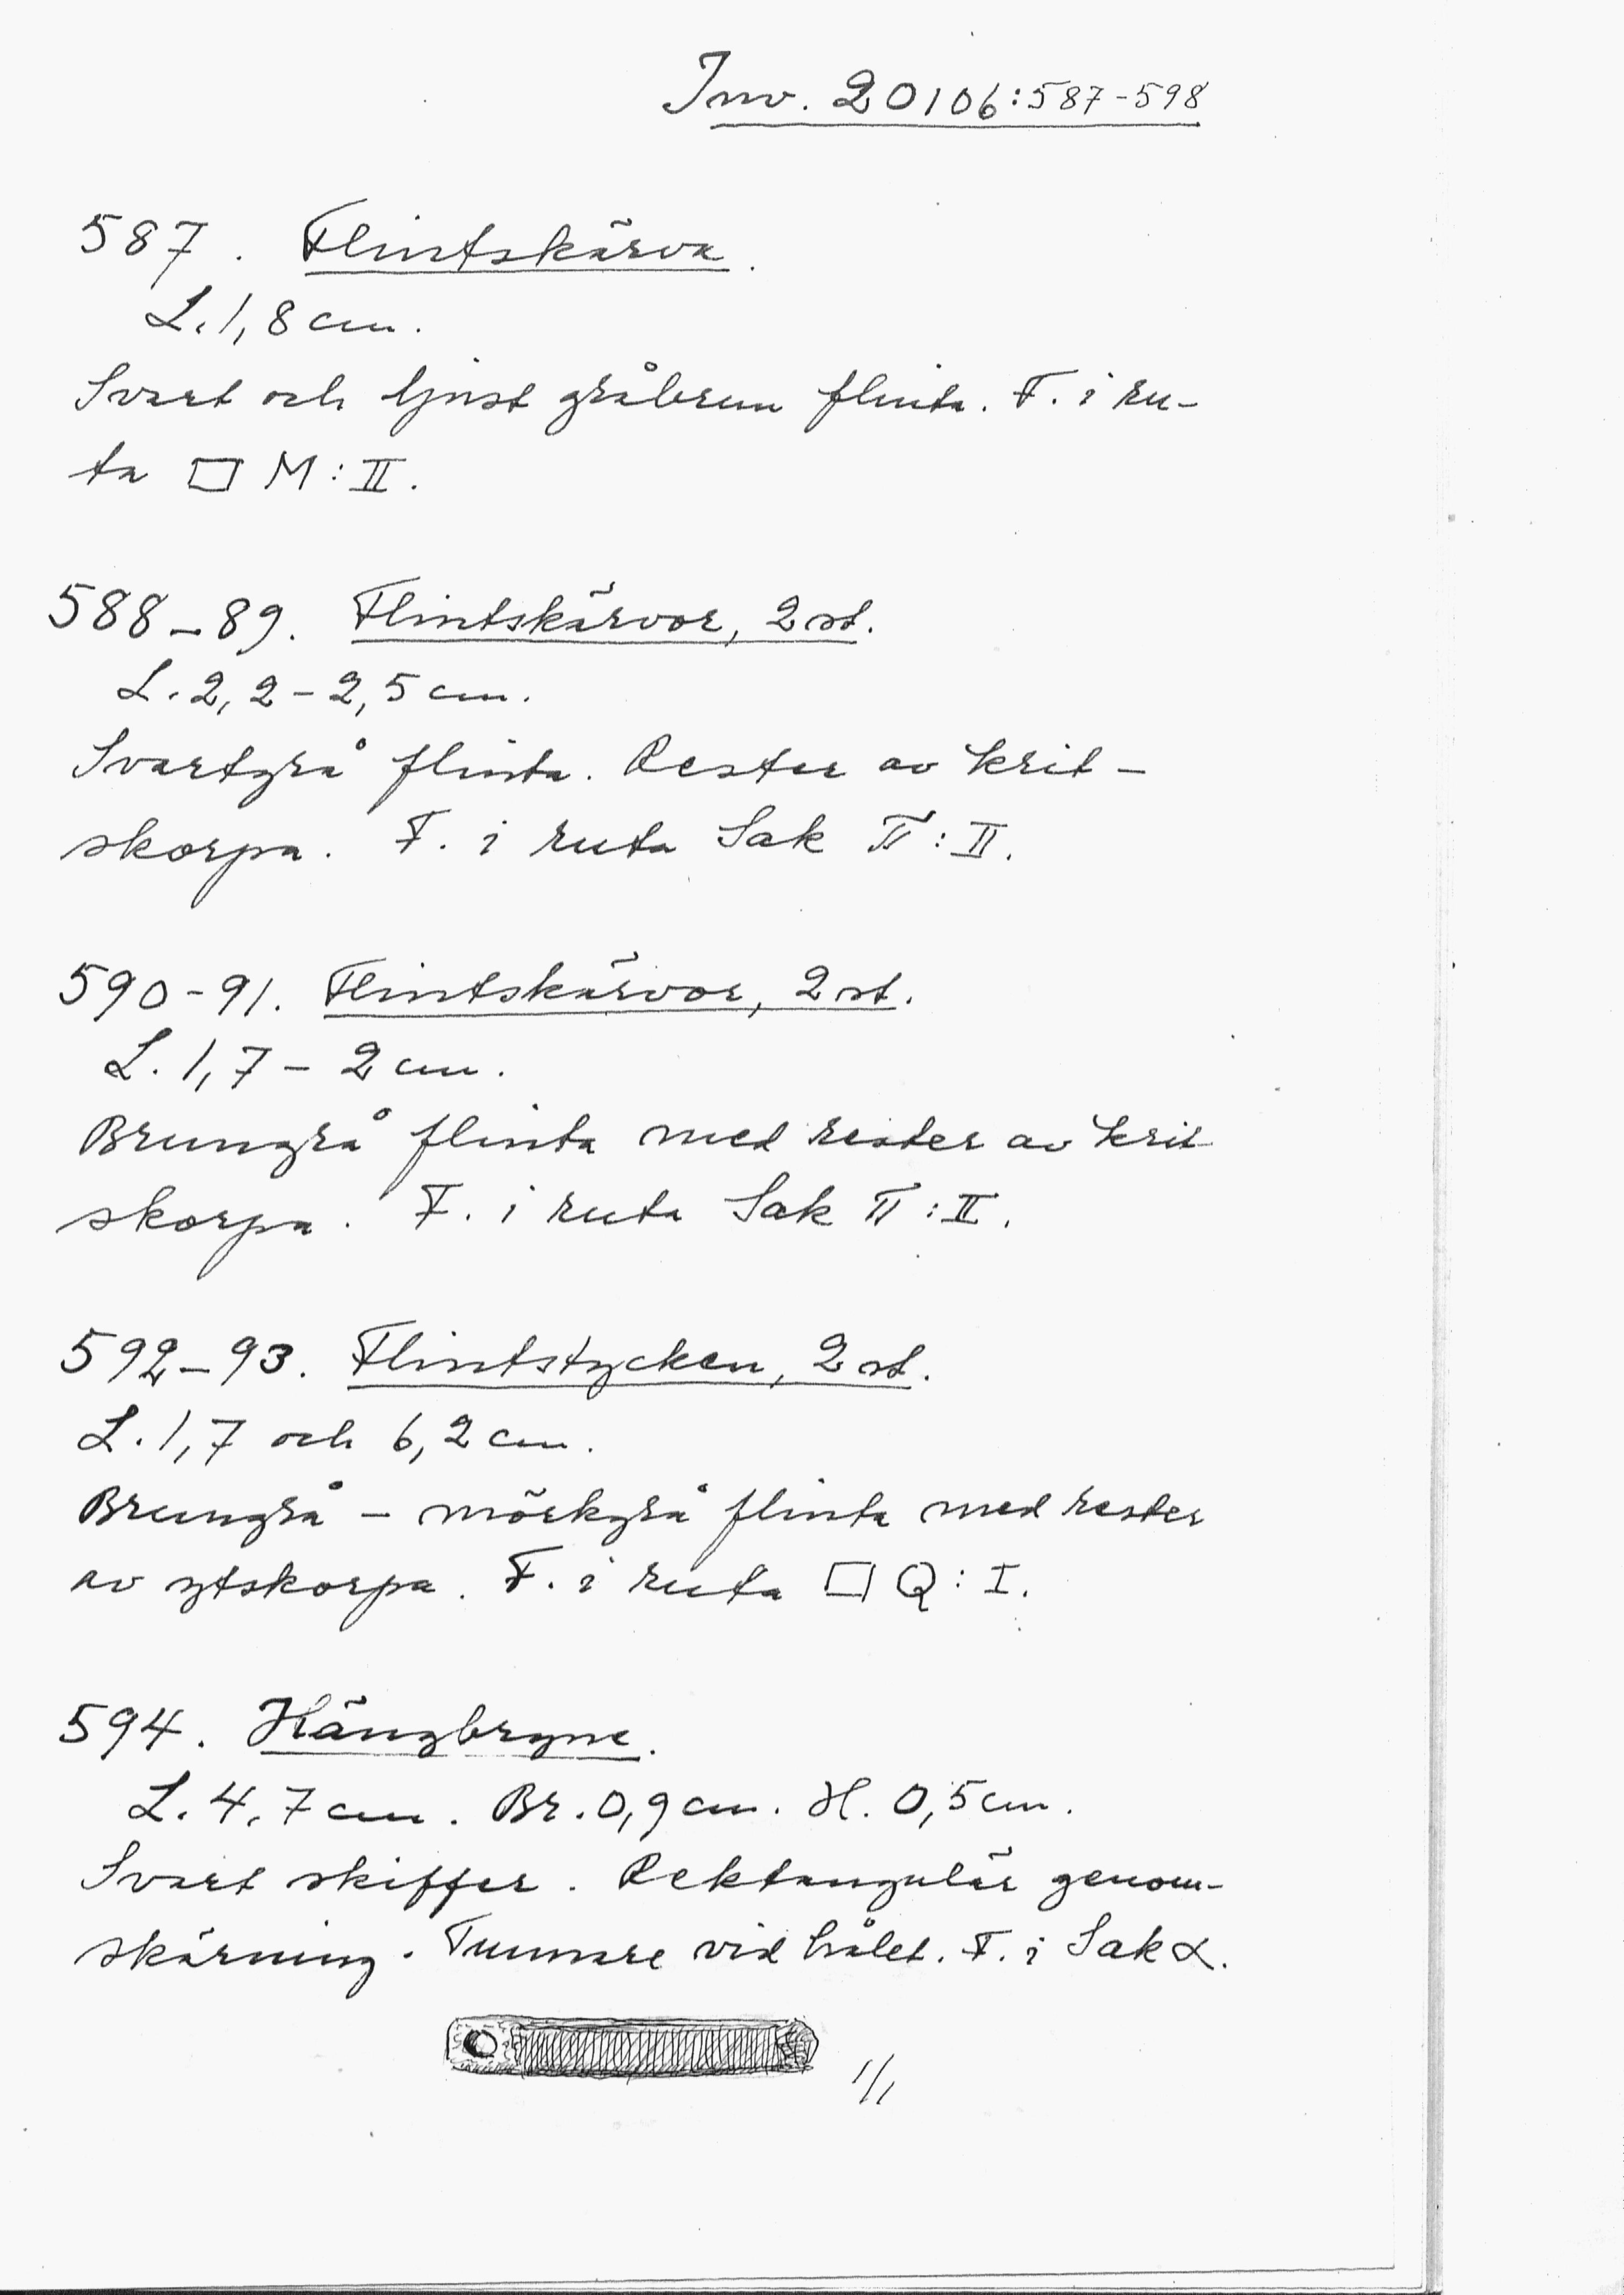 Inv. 20106:587-598
587. Flintskärva.
L. 1,8 cm.
Svart och ljust gråbrun flinta. F. i ru-
ta □ M:II.
588-89. Flintskärvor, 2 st.
L. 2,2-2,5 cm.
Svartgrå flinta. Rester av krit-
skorpa. F. i ruta Sak π:II.
590-91. Flintskärvor, 2 st.
L. 1,7 - 2 cm.
Brungrå flinta med rester av krit
skorpa. F. i ruta Sak π:II.
592-93. Flintstycken, 2 st.
L. 1,7 och 6,2 cm.
Brungrå - mörkgrå flinta med rester
av ytskorpa. F. i ruta □ Q:I.
594. Hängbryne.
L. 4,7 cm. Br. 0,9 cm. H. 0,5 cm.
Svart skiffer. Rektangulär genom-
skärning. Tunnare vid hålet. F. i Sak α.
1/1